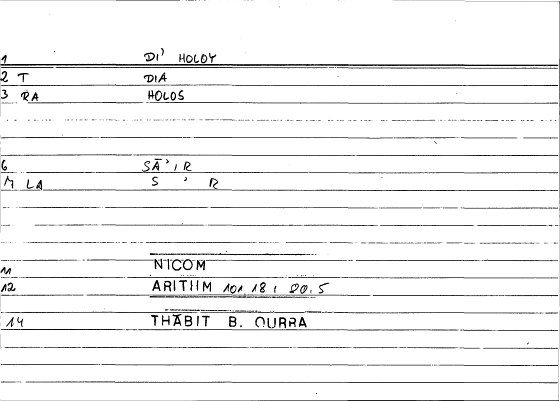 1 DI' HOLOY
2 T DIA
3 RA HOLOS
6 SĀ'IR
M LA S ' R
11 NICOM
12 ARITHM 101 18 : 90.5
14 THĀBIT B. QURRA